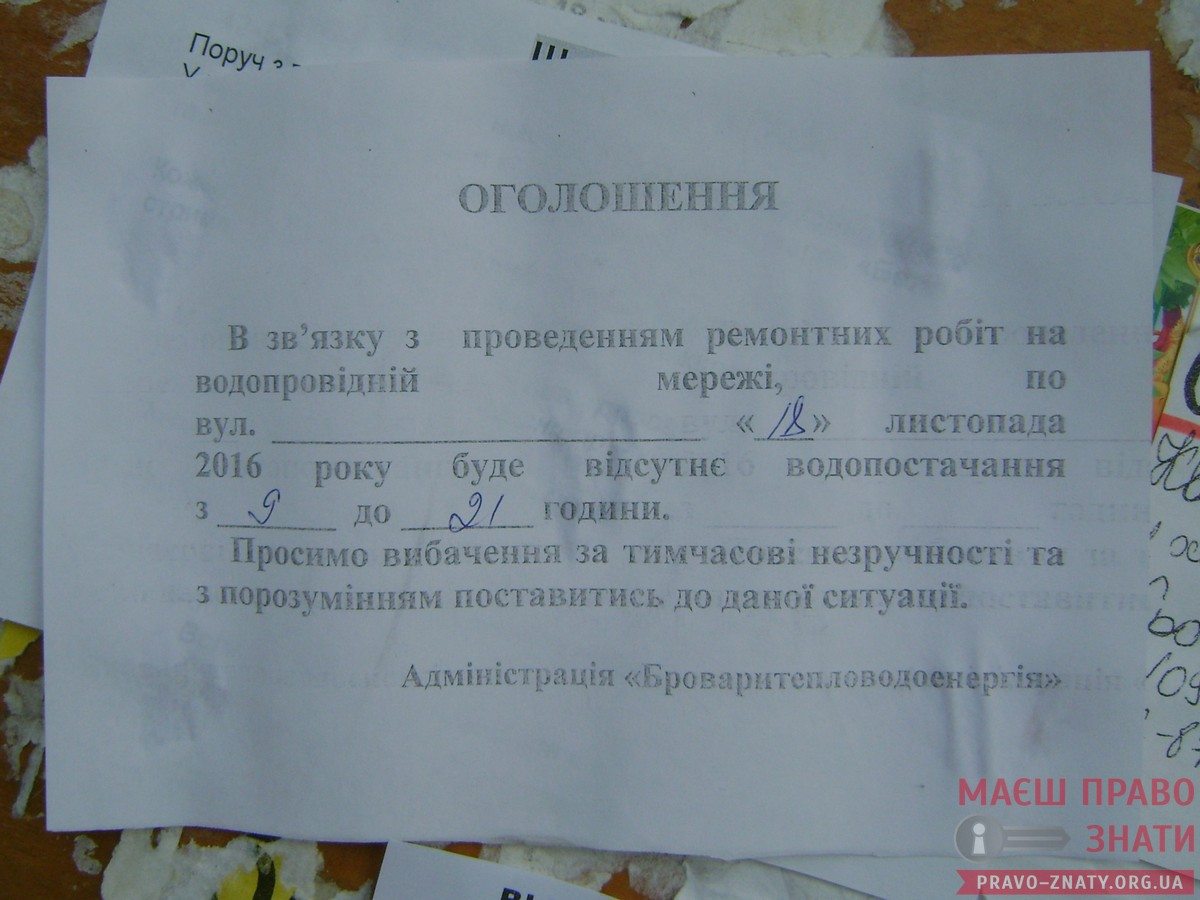 Поруч з
ОГОЛОШЕННЯ
В зв’язку з проведенням ремонтних робіт на
водопровідній мережі, по
вул. ____________ «18» листопада
2016 року буде відсутнє водопостачання
з 9 до 21 години.
Просимо вибачення за тимчасові незручності та
з порозумінням поставитись до даної ситуації.
Адміністрація «Броваритепловодоенергія»
МАЄШ ПРАВО
ЗНАТИ
PRAVO-ZNATY.ORG.UA